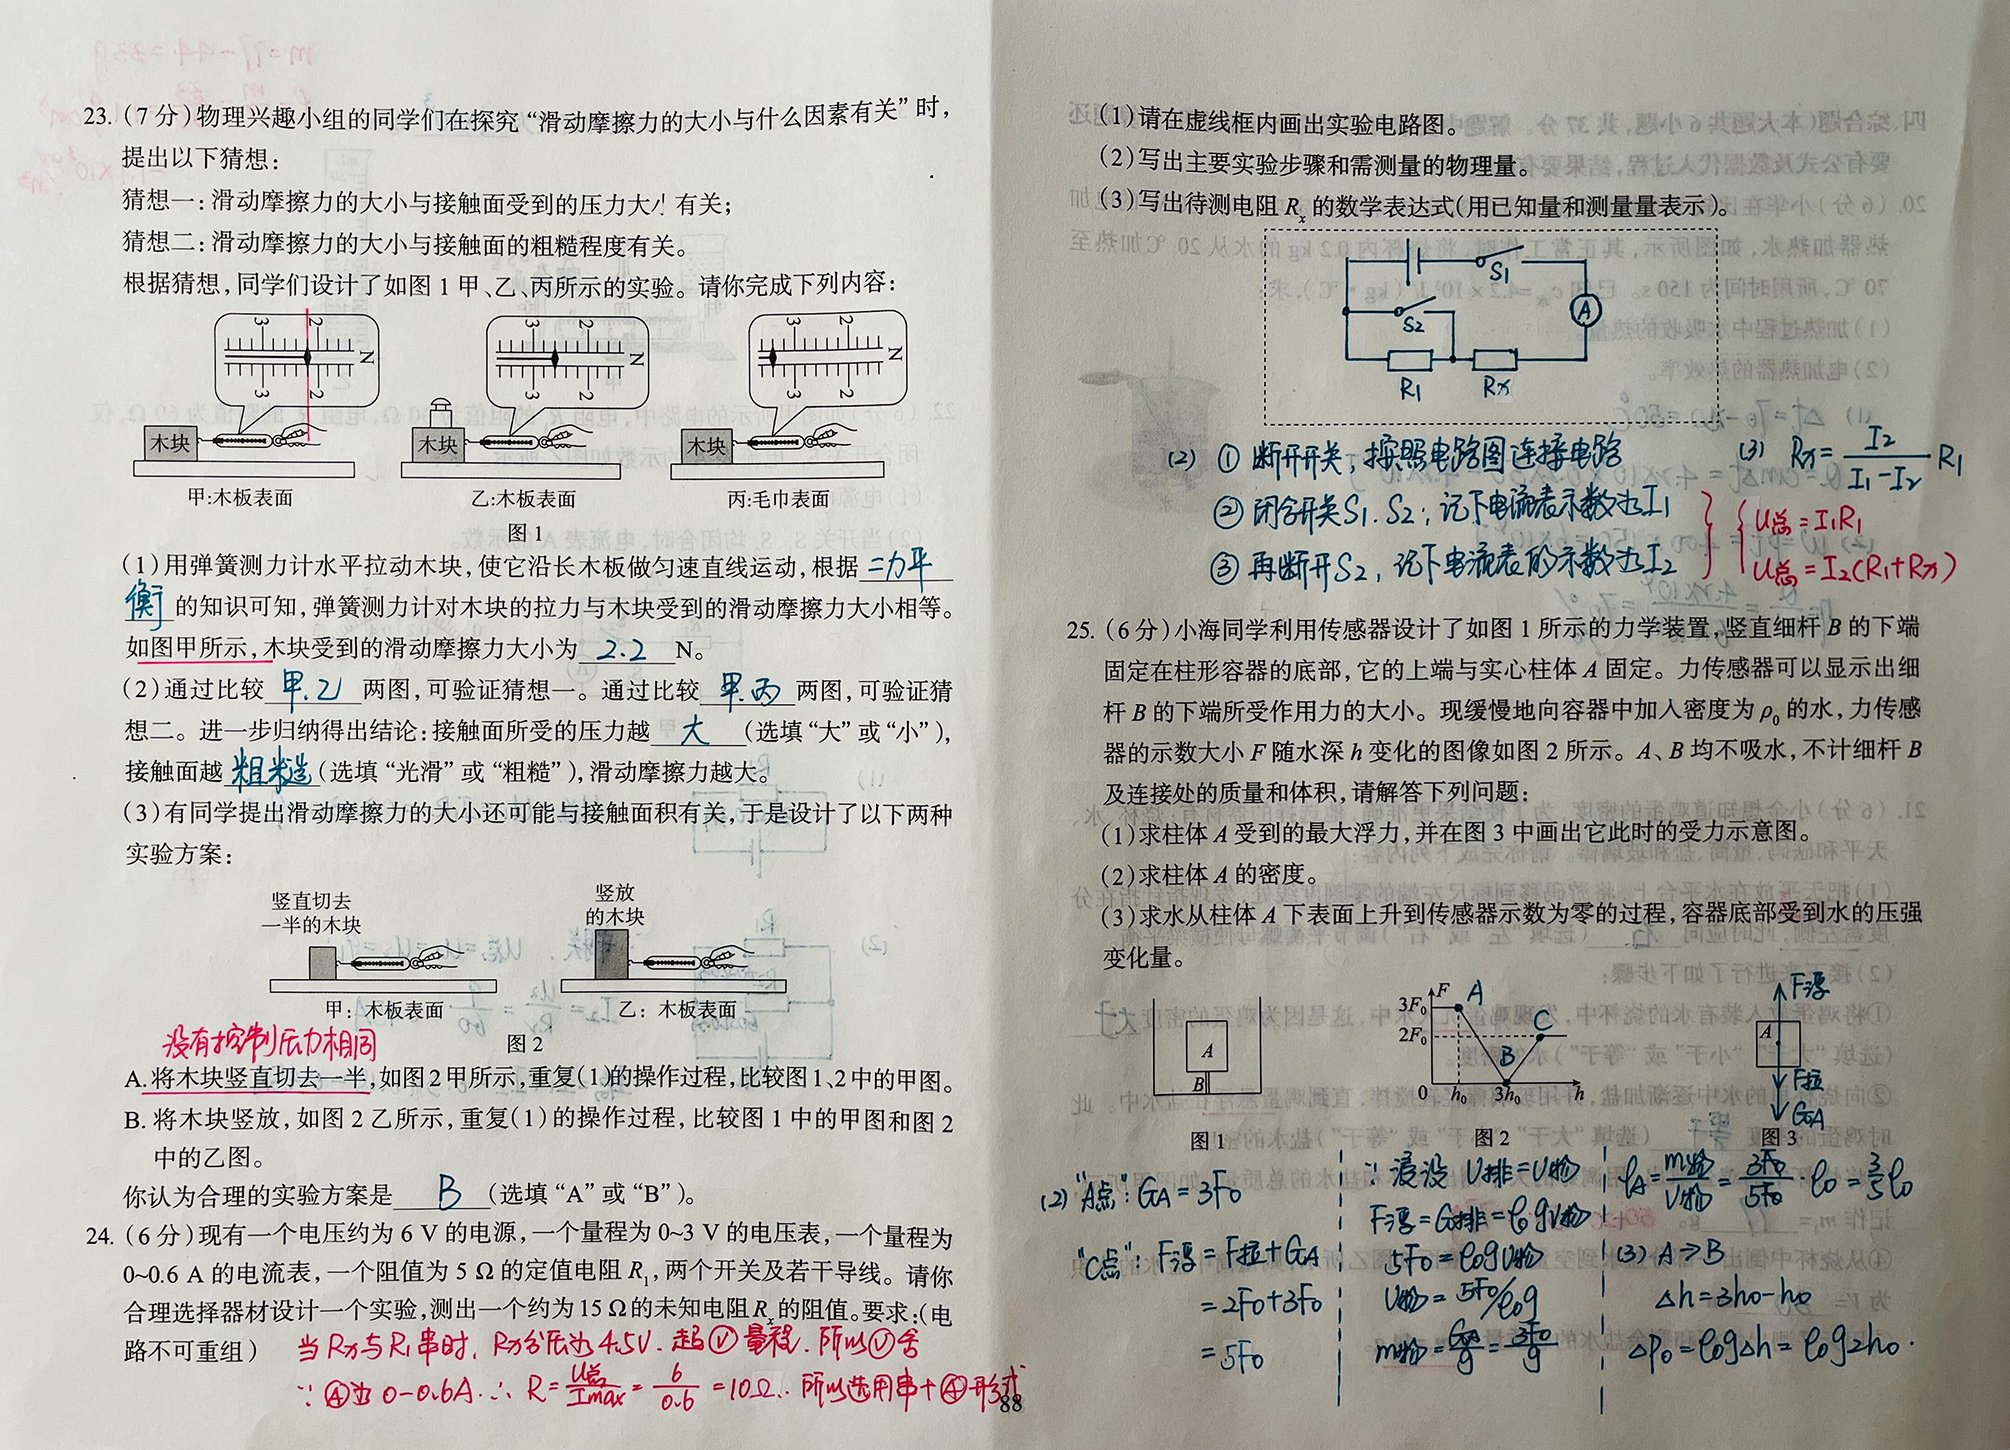 23.(7分)物理兴趣小组的同学们在探究“滑动摩擦力的大小与什么因素有关”时,
提出以下猜想:
猜想一:滑动摩擦力的大小与接触面受到的压力大小有关;
猜想二:滑动摩擦力的大小与接触面的粗糙程度有关。
根据猜想,同学们设计了如图1甲、乙、丙所示的实验。请你完成下列内容:
3 2 N 3 2
3 2 N 3 2
3 2 N 3 2
木块
木块
木块
甲:木板表面
乙:木板表面
丙:毛巾表面
图1
(1)用弹簧测力计水平拉动木块,使它沿长木板做匀速直线运动,根据 二力平
衡 的知识可知,弹簧测力计对木块的拉力与木块受到的滑动摩擦力大小相等。
如图甲所示,木块受到的滑动摩擦力大小为 2.2 N。
(2)通过比较 甲.乙 两图,可验证猜想一。通过比较 甲.丙 两图,可验证猜
想二。进一步归纳得出结论:接触面所受的压力越 大 (选填“大”或“小”),
接触面越 粗糙 (选填“光滑”或“粗糙”),滑动摩擦力越大。
(3)有同学提出滑动摩擦力的大小还可能与接触面积有关,于是设计了以下两种
实验方案:
竖直切去
一半的木块
竖放
的木块
甲:木板表面
乙:木板表面
图2
没有控制压力相同
A.将木块竖直切去一半,如图2甲所示,重复(1)的操作过程,比较图1、2中的甲图。
B.将木块竖放,如图2乙所示,重复(1)的操作过程,比较图1中的甲图和图2
中的乙图。
你认为合理的实验方案是 B (选填“A”或“B”)。
24.(6分)现有一个电压约为6 V的电源,一个量程为0~3 V的电压表,一个量程为
0~0.6 A的电流表,一个阻值为5 Ω的定值电阻R₁,两个开关及若干导线。请你
合理选择器材设计一个实验,测出一个约为15 Ω的未知电阻Rₓ的阻值。要求:(电
路不可重组)
当Rx与R₁串时,Rx分压为4.5V.超Ⓥ量程.所以Ⓥ舍
∵Ⓐ为0-0.6A.∴R=U总/Imax=6/0.6=10Ω.所以选用串+Ⓐ形式
88
(1)请在虚线框内画出实验电路图。
(2)写出主要实验步骤和需测量的物理量。
(3)写出待测电阻Rₓ的数学表达式(用已知量和测量量表示)。
S1
A
S2
R1 Rx
(2)①断开开关,按照电路图连接电路
②闭合开关S1.S2;记下电流表示数为I1
③再断开S2,记下电流表的示数为I2
(3) Rx=I2/(I1-I2) R1
U总=I1R1
U总=I2(R1+Rx)
25.(6分)小海同学利用传感器设计了如图1所示的力学装置,竖直细杆B的下端
固定在柱形容器的底部,它的上端与实心柱体A固定。力传感器可以显示出细
杆B的下端所受作用力的大小。现缓慢地向容器中加入密度为ρ₀的水,力传感
器的示数大小F随水深h变化的图像如图2所示。A、B均不吸水,不计细杆B
及连接处的质量和体积,请解答下列问题:
(1)求柱体A受到的最大浮力,并在图3中画出它此时的受力示意图。
(2)求柱体A的密度。
(3)求水从柱体A下表面上升到传感器示数为零的过程,容器底部受到水的压强
变化量。
A
B
图1
F
3F₀
2F₀
0 h₀ 3h₀ h
A
B
C
图2
F浮
A
F拉
GA
图3
(2)"A点":GA=3F0
"C点":F浮=F拉+GA
=2F0+3F0
=5F0
∵浸没 V排=V物
F浮=G排=ρ0gV物
5F0=ρ0gV物
V物=5F0/ρ0g
m物=GA/g=3F0/g
ρA=m物/V物=3F0/5F0·ρ0=3/5ρ0
(3) A→B
Δh=3h0-h0
Δp0=ρ0gΔh=ρ0g2h0.